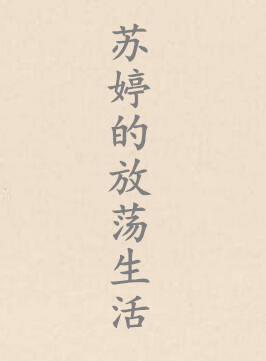 苏婷的放荡生活